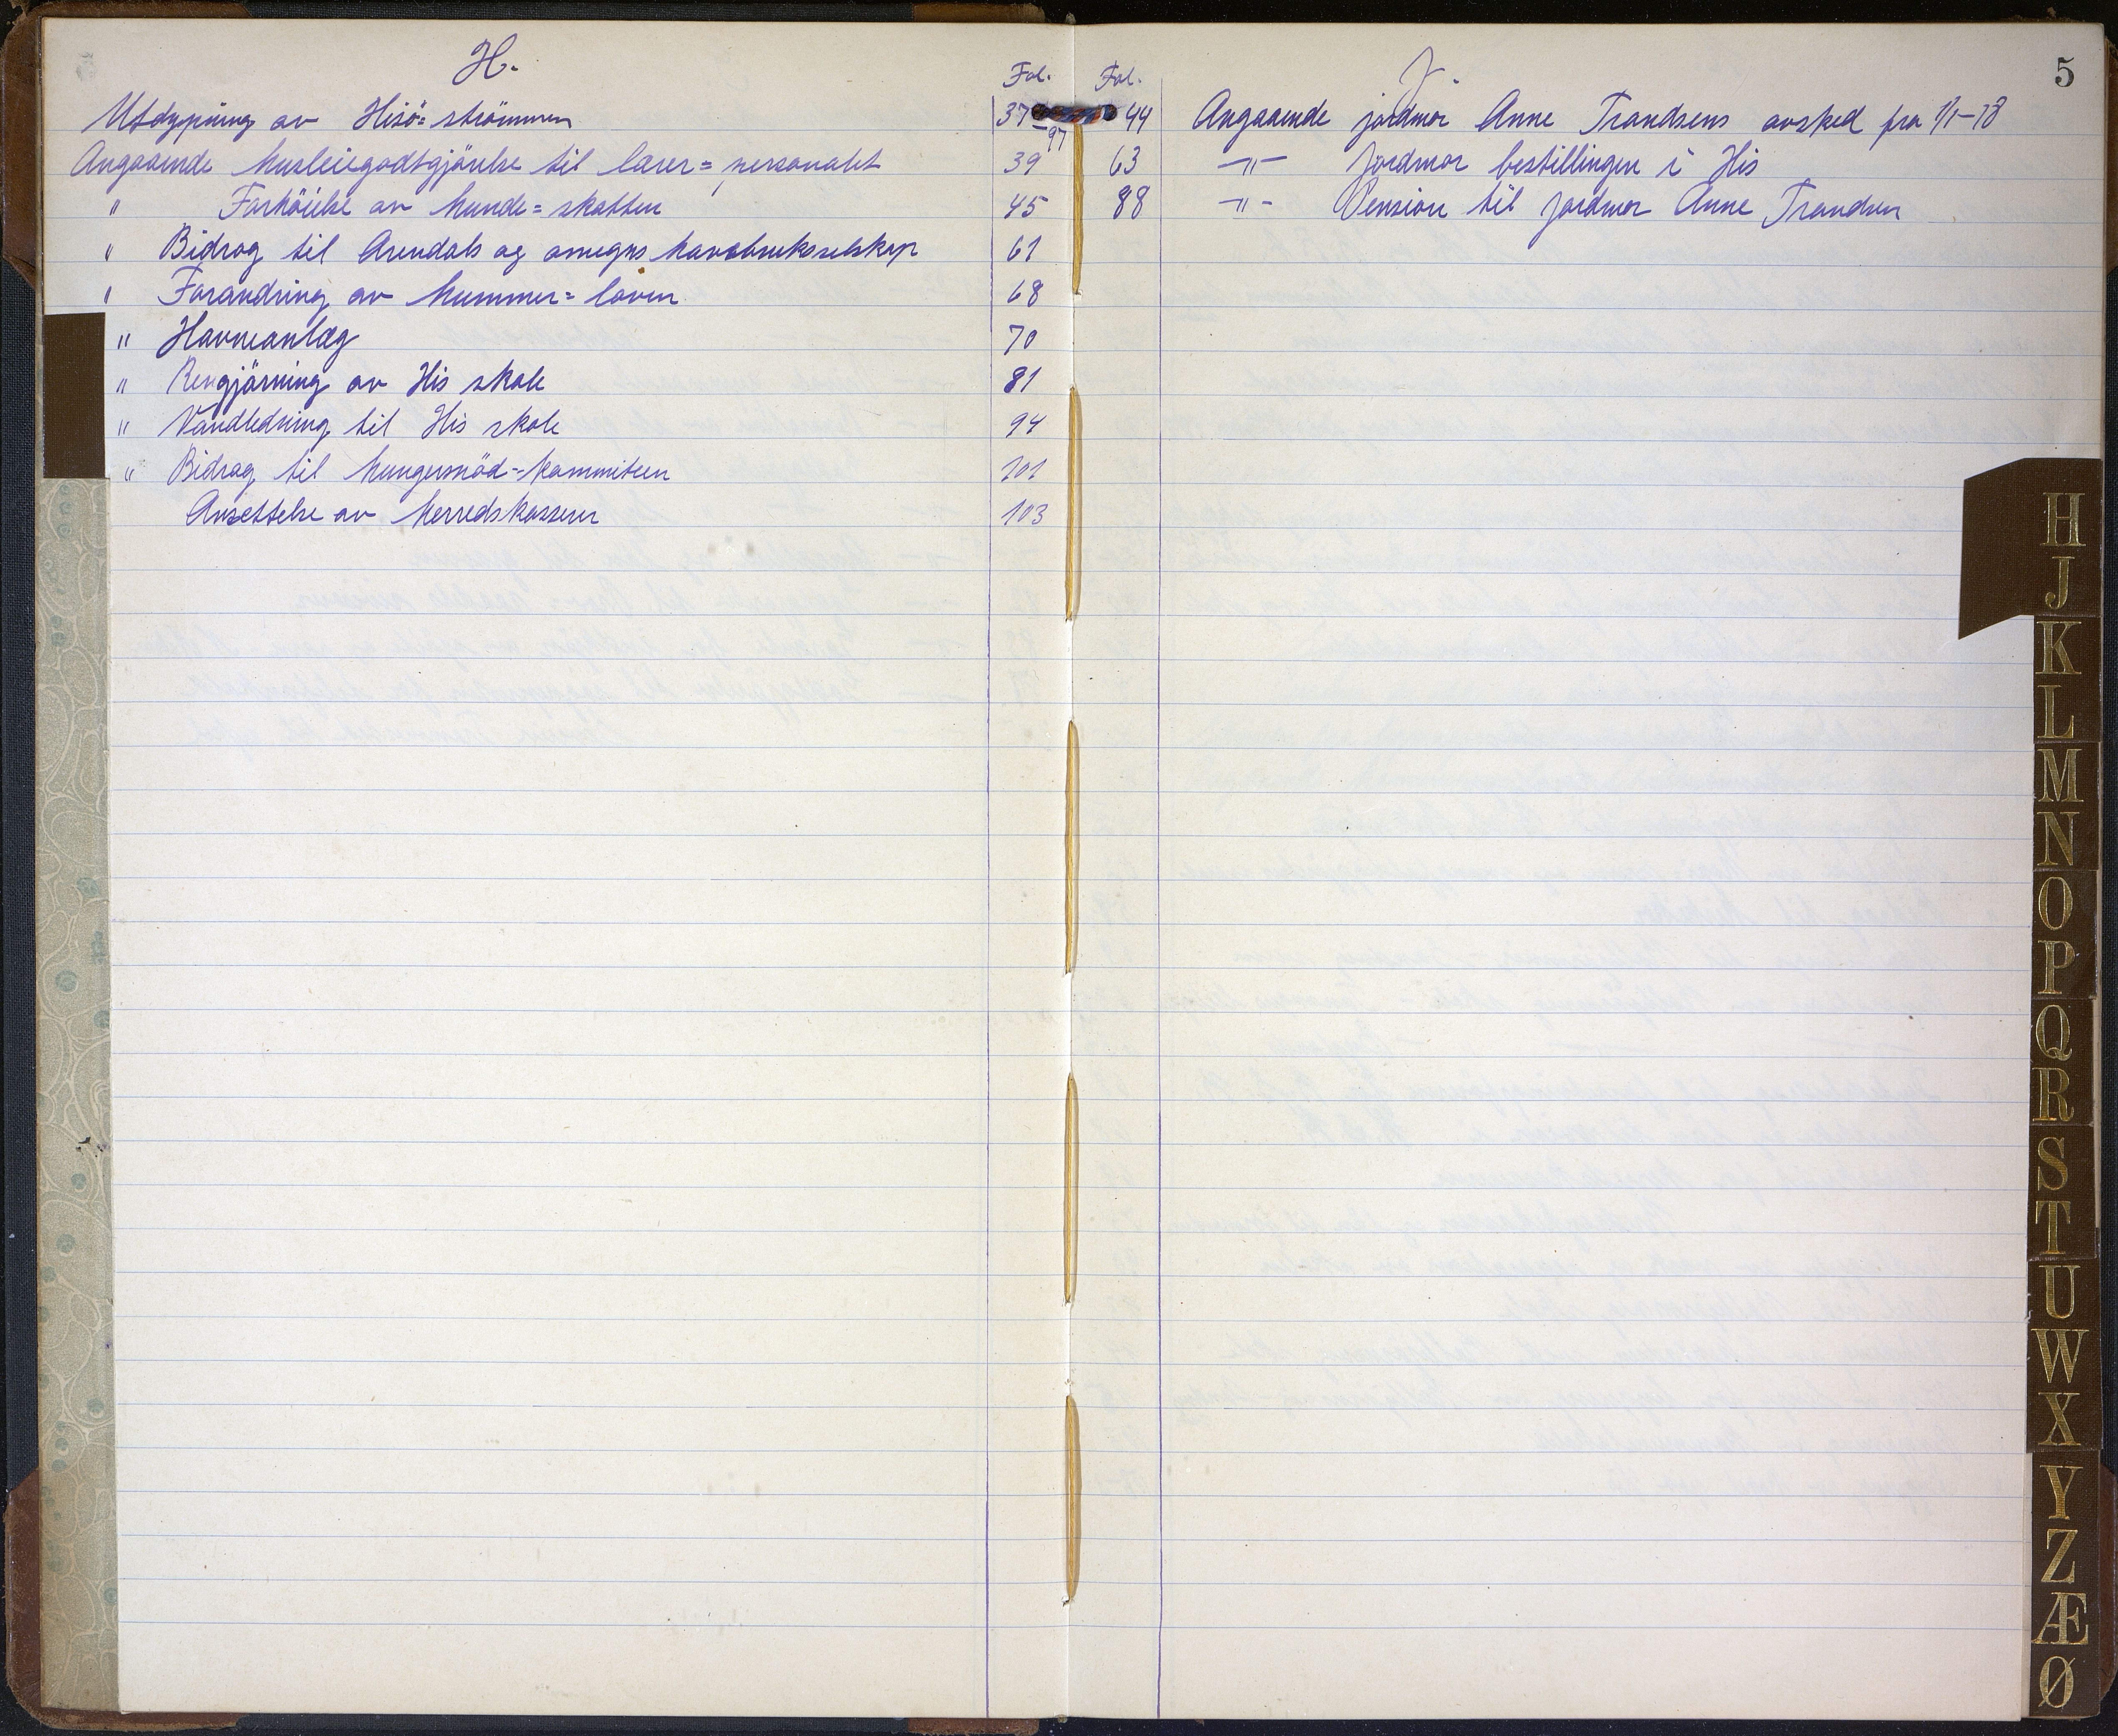 H.
Fol.
Utdypning av Hisö=strömmen 37-97
Angaaende husleiegodtgjörelse til lærer=personalet 39
" Forhöielse av hunde=skatten 45
" Bidrag til Arendals og omegns havebruksselskap 61
" Forandring av hummer=loven 68
" Havneanlæg 70
" Rengjörning av His skole 81
" Vandledning til His skole 94
" Bidrag til hungersnöd=kommiteen 101
Ansettelse av herredskasserer 103
5
J.
Fol.
44 Angaaende jordmor Anne Trandsens avsked fra 1/1-18
63 -"- Jordmor bestillingen i His
88 -"- Pension til jordmor Anne Trandsen
H
J
K
L
M
N
O
P
Q
R
S
T
U
W
X
Y
Z
Æ
Ø